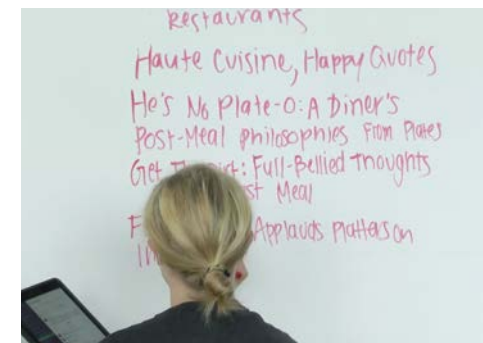 Restaurants
Haute Cuisine, Happy Quotes
He's No Plate-O: A Diner's
Post-Meal Philosophies From Plates
Get : Full-Bellied Thoughts
Meal
Applauds Platters on